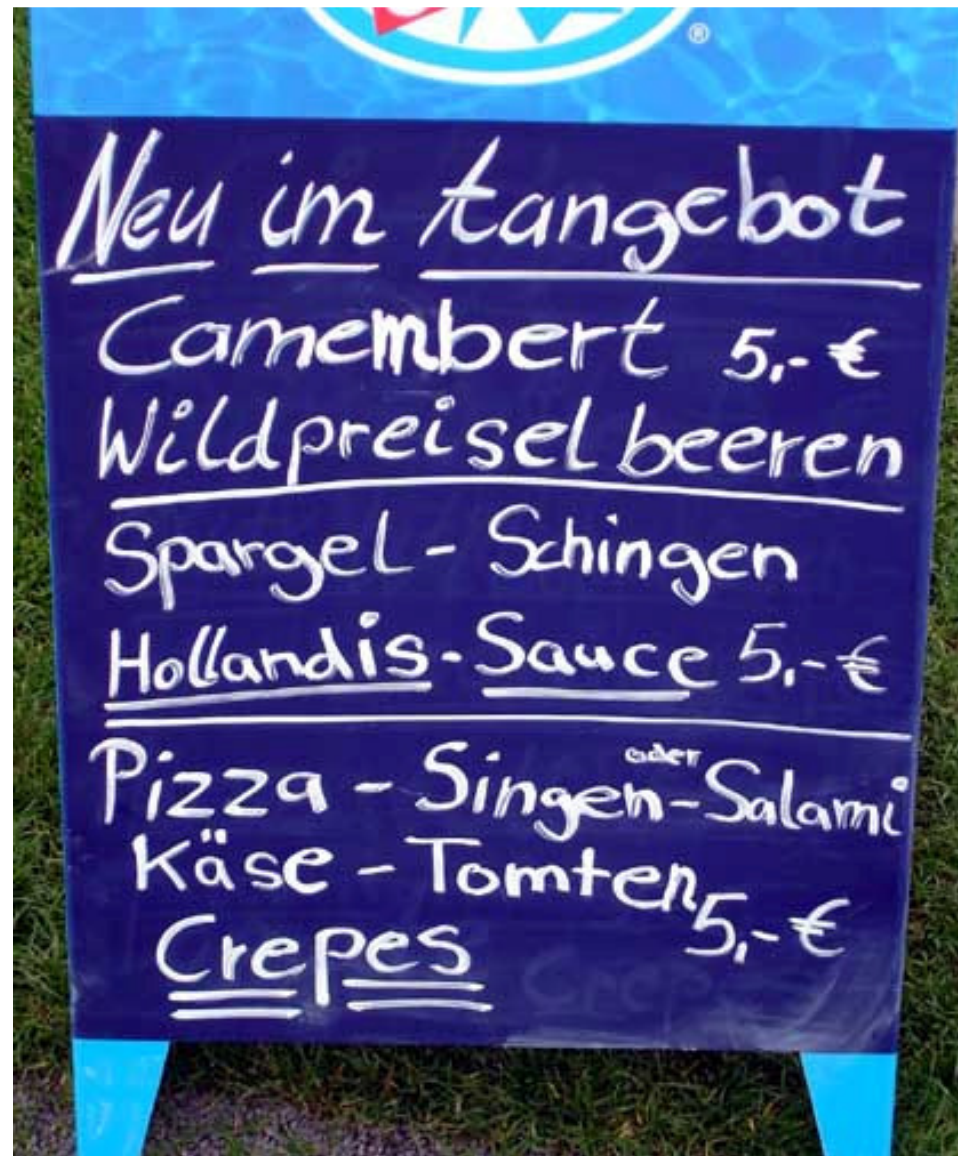 Neu im tangebot
Camembert 5,-€
Wildpreiselbeeren
Spargel - Schingen
Hollandis - Sauce 5,-€
Pizza - Singen oder - Salami
Käse - Tomten 5,-€
Crepes